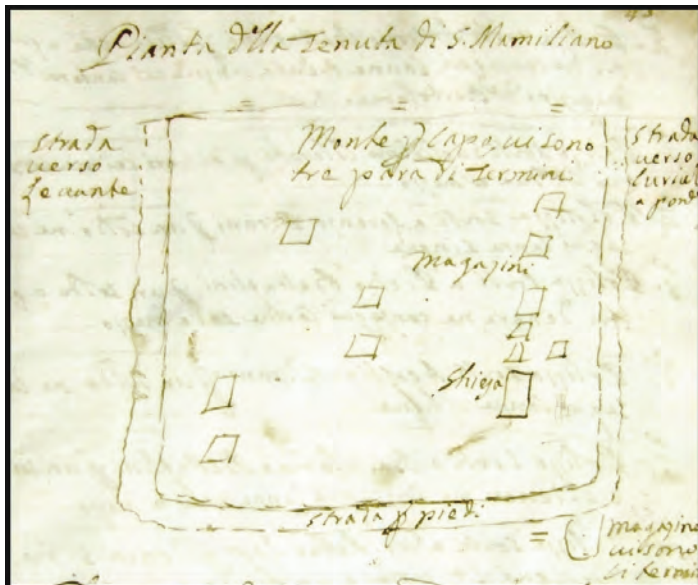 Pianta d'lla Tenuta di S. Mamiliano
strada
verso
Levante
Monte p Capo, vi sono
tre para di Termini
strada
verso
Magazini
Chieja
strada p piedi
magazine
vi sono